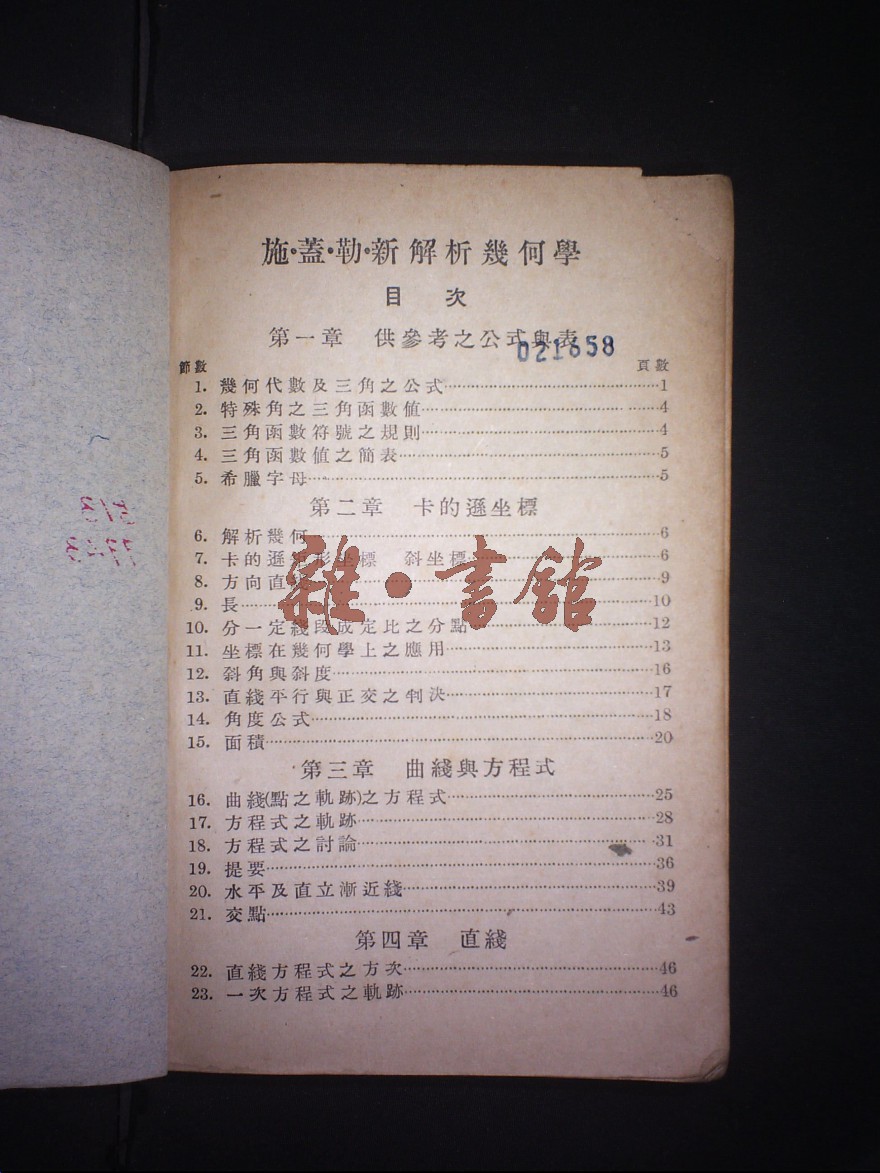 施·蓋·勒·新解析幾何學
目 次
第一章 供參考之公式與表
021658
節數 頁數
1. 幾何代數及三角之公式 1
2. 特殊角之三角函數值 4
3. 三角函數符號之規則 4
4. 三角函數值之簡表 5
5. 希臘字母 5
第二章 卡的遜坐標
6. 解析幾何 6
7. 卡的遜 形坐標 斜坐標 6
8. 方向直 9
9. 長 10
10. 分一定綫段成定比之分點 12
雜·書館
11. 坐標在幾何學上之應用 13
12. 斜角與斜度 16
13. 直綫平行與正交之判決 17
14. 角度公式 18
15. 面積 20
第三章 曲綫與方程式
16. 曲綫(點之軌跡)之方程式 25
17. 方程式之軌跡 28
18. 方程式之討論 31
19. 提要 36
20. 水平及直立漸近綫 39
21. 交點 43
第四章 直綫
22. 直綫方程式之方次 46
23. 一次方程式之軌跡 46